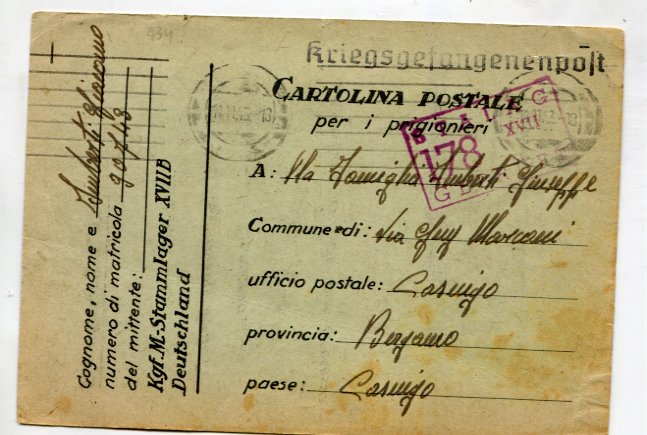 934
Kriegsgefangenenpost
CARTOLINA POSTALE
per i prigionieri
STALAG
XVII
178
G
A: Alla Famiglia Imberti Giuseppe
Commune di: Via Marconi
ufficio postale: Casnigo
provincia: Bergamo
paese: Casnigo
Cognome, nome e Imberti Giacomo
numero di matricola
del mittente:
Kgf.M-Stammlager XVII B
Deutschland